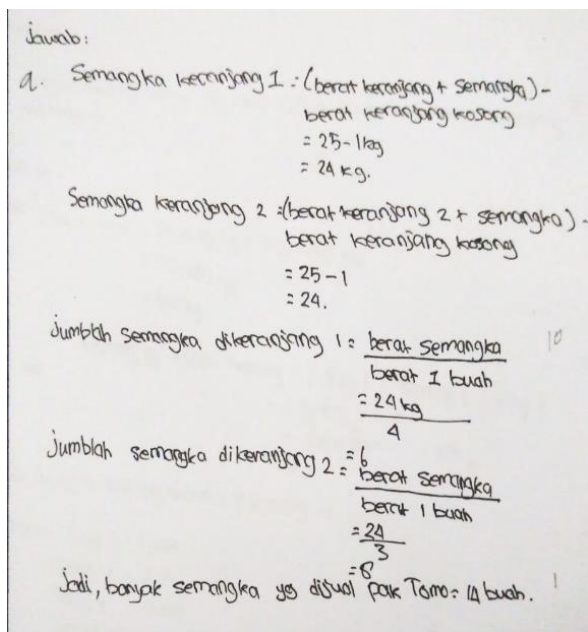 Jawab:
a. Semangka keranjang 1 = (berat keranjang + semangka) -
berat keranjang kosong
= 25 - 1 kg
= 24 kg.
Semangka keranjang 2 = (berat keranjang 2 + semangka) -
berat keranjang kosong
= 25 - 1
= 24.
Jumblah semangka dikeranjang 1 = berat semangka 10
berat 1 buah
= 24 kg
4
= 6
Jumblah semangka dikeranjang 2 = berat semangka
berat 1 buah
= 24
3
= 8
Jadi, banyak semangka yg dijual pak Tomo = 14 buah. 1